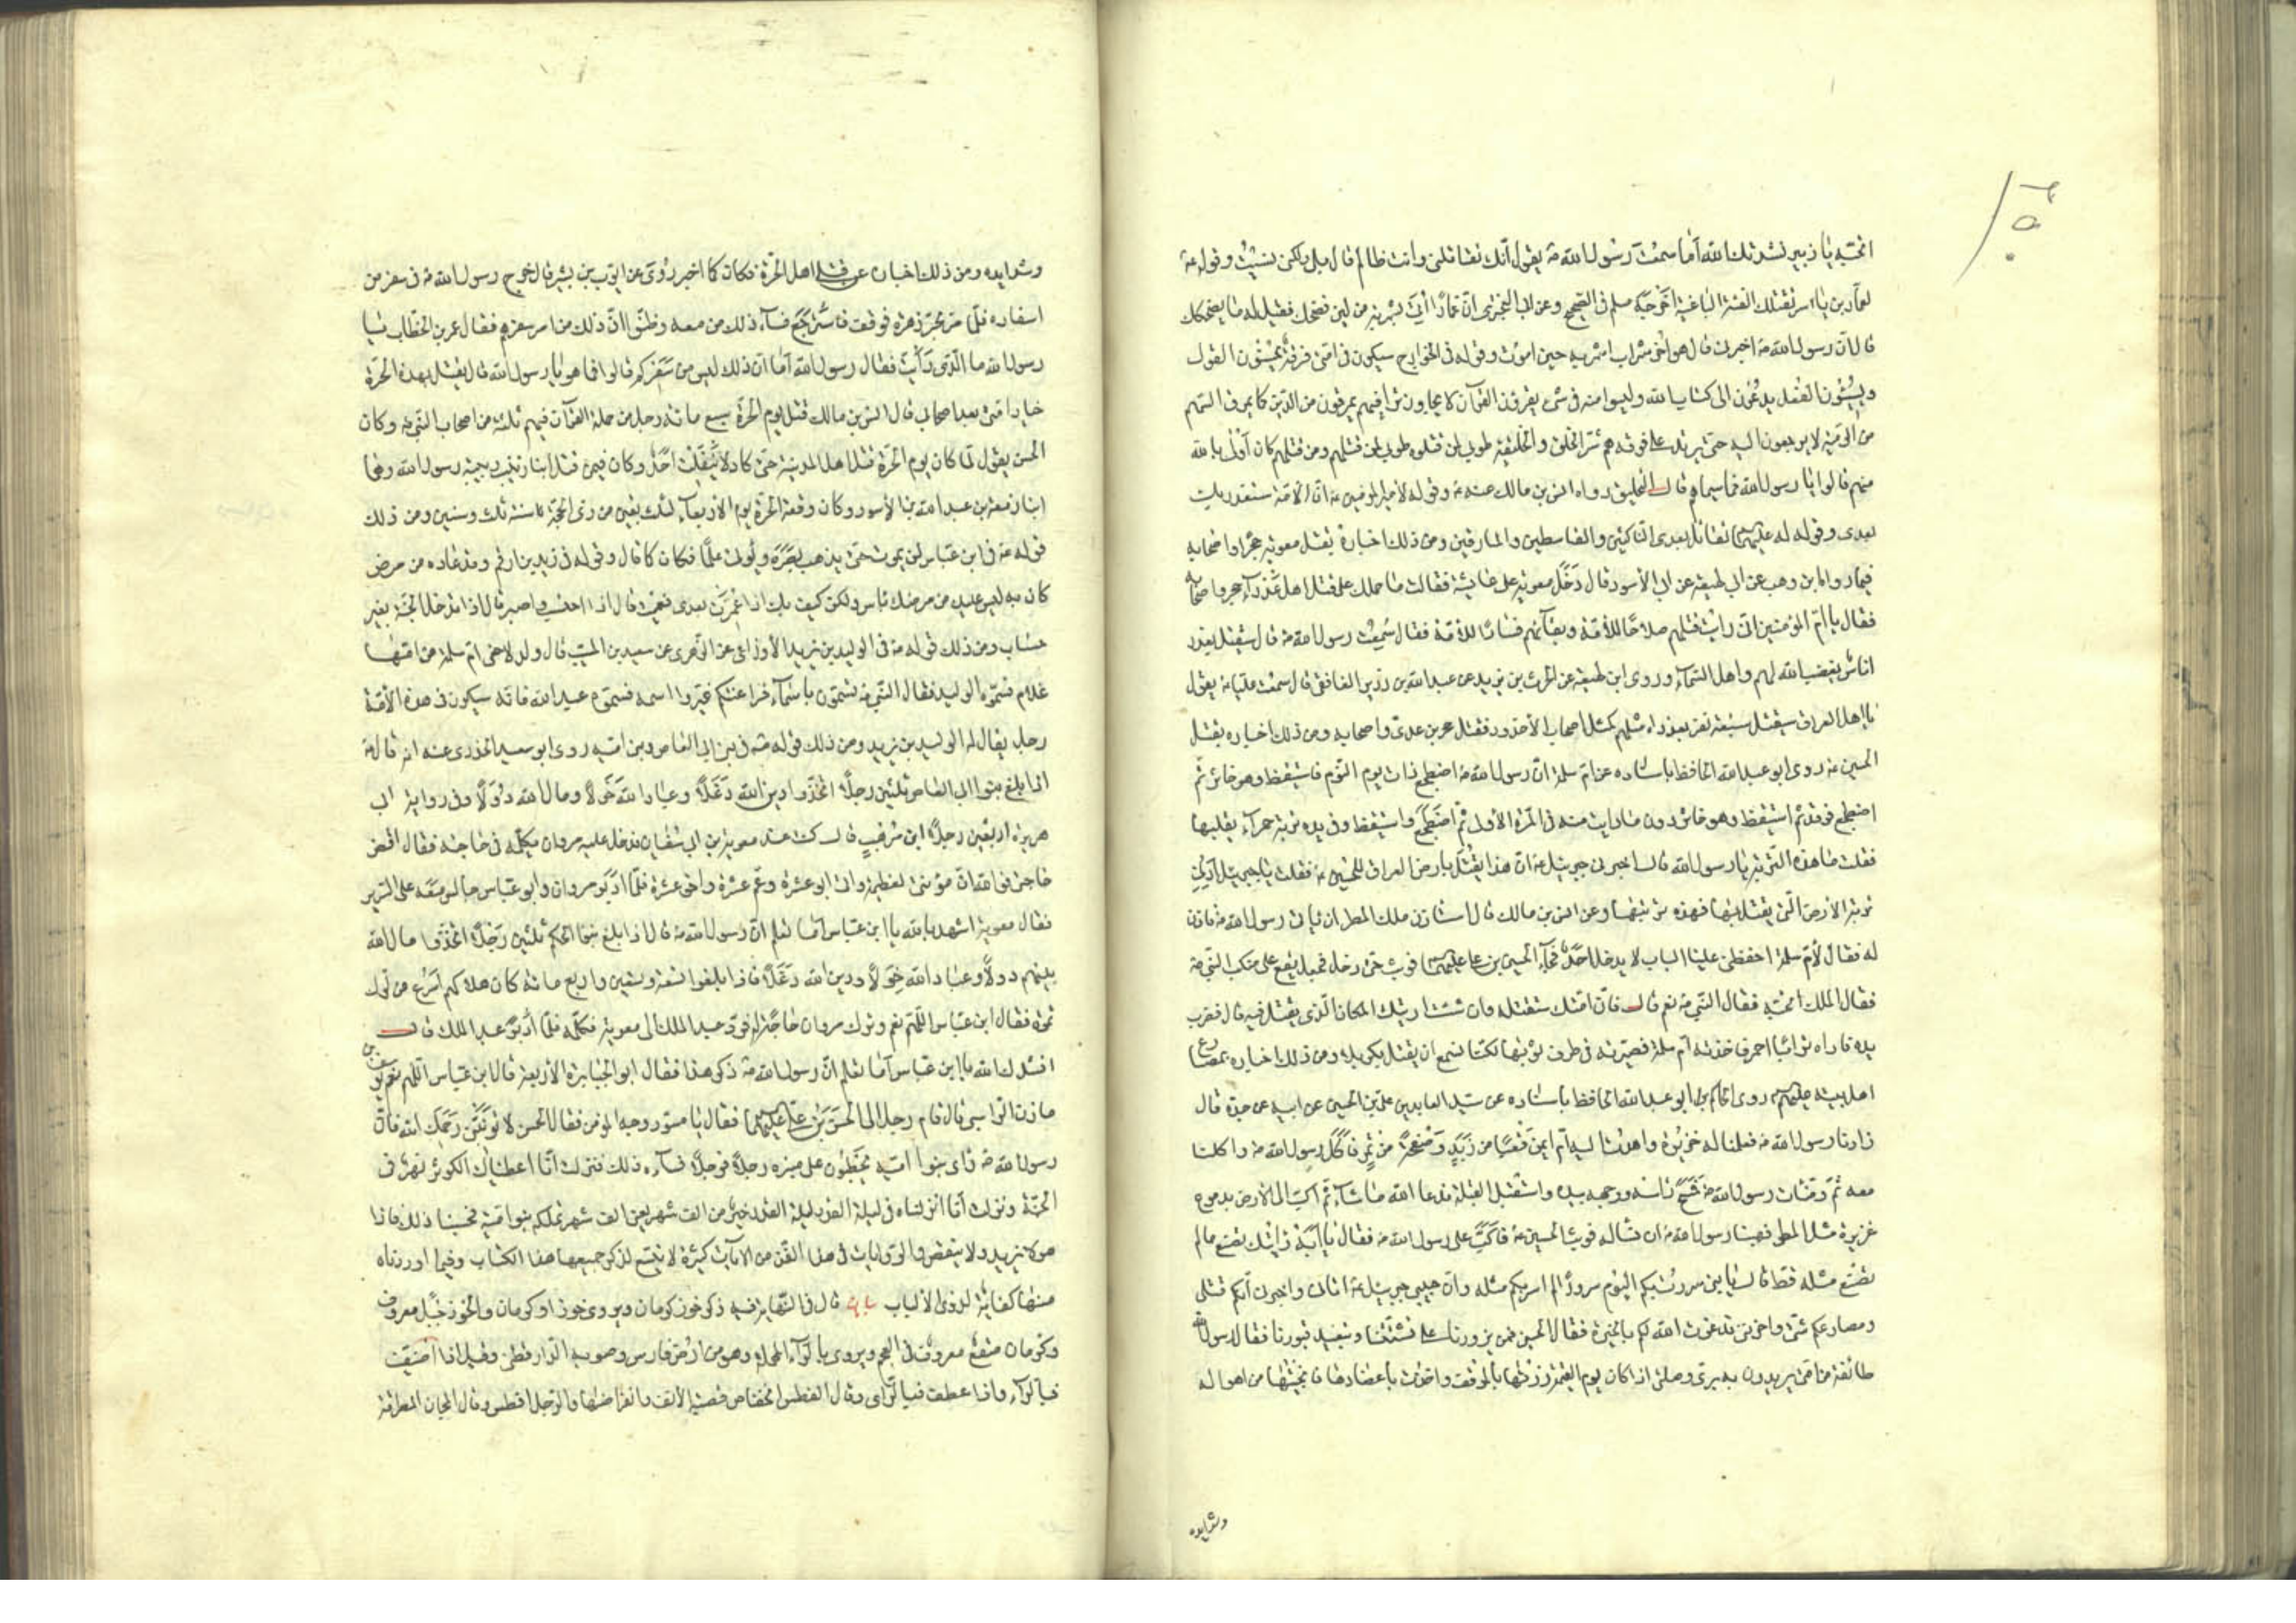 اتحبه يا زبير نشدتك الله أما سمعت رسول الله ص يقول أنك تقاتلني وانت ظالم قال بلى ولكن نسيت وقوله ص
لعمار بن ياسر تقتلك الفئة الباغية أخرجه مسلم في الصحيح وعن أبي البختري ان عمارا أتي بشربة من لبن فضحك فقيل له ما يضحكك
قال ان رسول الله ص اخبرني قال هو آخر شراب اشربه حين اموت وقوله في الخوارج سيكون في امتي فرقة يحسنون القول
ويسيئون الفعل يدعون الى كتاب الله وليسوا منه في شيء يقرؤن القرآن لا يجاوز تراقيهم يمرقون من الدين كما يمرق السهم
من الرمية لا يرجعون اليه حتى يرتد على فوقه هم شر الخلق والخليقة طوبى لمن قتلوه طوبى لمن قتلهم ومن قتلهم كان أولى بالله
منهم قالوا يا رسول الله فما سيماهم قال التحليق رواه انس بن مالك عنه ص وقوله لأمير المؤمنين ع ان الأمة ستغدر بك
بعدي وقوله له عليهما السلام تقاتل بعدي الناكثين والقاسطين والمارقين ومن ذلك اخباره بقتل معوية حجرا واصحابه
فيما رواه ابن وهب عن ابي لهيعة عن ابي الأسود قال دخل معوية على عائشة فقالت ما حملك على قتل اهل عذراء حجر واصحابه
فقال يا ام المؤمنين اني رايت قتلهم صلاحا للأمة وبقاءهم فسادا للأمة فقال سمعت رسول الله ص قال سيقتل بعذرا
اناس يغضب الله لهم واهل السماء وروى ابن لهيعة عن الحرث بن يزيد عن عبد الله بن رزين الغافقي قال سمعت عليا ع يقول
يا اهل العراق سيقتل سبعة نفر بعذراء مثلهم كمثل اصحاب الأخدود فقتل حجر بن عدي واصحابه ومن ذلك اخباره بقتل
الحسين ع روى ابو عبد الله الحافظ باسناده عن ام سلمة ان رسول الله ص اضطجع ذات يوم النوم فاستيقظ وهو خاثر ثم
اضطجع فرقد ثم استيقظ وهو خاثر دون ما رايت منه في المرة الأولى ثم اضطجع واستيقظ وفي يده تربة حمراء يقلبها
فقلت ما هذه التربة يا رسول الله قال اخبرني جبرئيل ع ان هذا يقتل بارض العراق للحسين ع فقلت يا جبرئيل أرني
تربة الأرض التي يقتل بها فهذه تربتها وعن انس بن مالك قال استاذن ملك المطر ان ياتي رسول الله ص فاذن
له فقال لأم سلمة احفظي علينا الباب لا يدخل احد فجاء الحسين بن علي عليهما السلام فوثب حتى دخل فجعل يقع على منكب النبي ص
فقال الملك اتحبه فقال النبي ص نعم قال فان امتك ستقتله وان شئت اريتك المكان الذي يقتل فيه قال فضرب
يده فاراه ترابا احمر فاخذته ام سلمة فصيرته في طرف ثوبها لكنا نسمع ان يقتل بكربلا ومن ذلك اخباره بمصارع
اهل بيته عليهم السلام روى الحاكم ابو عبد الله الحافظ باسناده عن سيد العابدين علي بن الحسين عن ابيه عن جده قال
زارنا رسول الله ص فعملنا له خزيرة واهدت اليه ام ايمن قعبا من زبد وصحفة من تمر فاكل رسول الله ص واكلنا
معه ثم وضأت رسول الله ص فمسح راسه ووجهه بيده واستقبل القبلة فدعا الله ما شاء ثم اكب الى الأرض بدموع
غزيرة مثل المطر فهبنا رسول الله ص ان نساله فوثب الحسين ع فاكب على رسول الله ص فقال يا ابة رايتك تصنع ما لم
تصنع مثله قط قال يا بني سررت بكم اليوم سرورا لم اسر بكم مثله وان حبيبي جبرئيل ع اتاني واخبرني انكم قتلى
ومصارعكم شتى واحزنني فدعوت الله لكم بالخيرة فقال الحسين فمن يزورنا على تشتتنا ويتعهد قبورنا فقال رسول الله
طائفة من امتي يريدون به بري وصلتي اذا كان يوم القيمة زرتها بالموقف واخذت باعضادها فانجيتها من اهواله
وشدايده
وشدايده ومن ذلك اخباره عن قتلى اهل الحرة فكان كما اخبر روي عن ايوب بن بشير قال خرج رسول الله ص في سفر من
اسفاره فلما مر بحرة زهرة فوقف فاسترجع فساء ذلك من معه وظنوا ان ذلك من امر سفرهم فقال عمر بن الخطاب يا
رسول الله ما الذي رأيت فقال رسول الله أما ان ذلك ليس من سفركم قالوا فما هو يا رسول الله قال يقتل بهذه الحرة
خيار امتي بعد اصحابي قال انس بن مالك قتل يوم الحرة سبع مائة رجل من حملة القرآن فيهم ثلثة من اصحاب النبي ص وكان
الحسن يقول لما كان يوم الحرة قتل اهل المدينة حتى كاد لا ينفلت احد وكان فيمن قتل ابنا زينب ربيبة رسول الله وهما
ابنا زمعة بن عبد الله بن الأسود وكان وقعة الحرة يوم الأربعاء لثلث بقين من ذي الحجة سنة ثلث وستين ومن ذلك
قوله ص في ابن عباس لن يموت حتى يذهب بصره ويؤتى علما فكان كما قال وقوله في زيد بن ارقم وقد عاده من مرض
كان به ليس عليك من مرضك باس ولكن كيف بك اذا عمرت بعدي فعميت قال اذا احتسب واصبر قال اذا تدخل الجنة بغير
حساب ومن ذلك قوله ص في الوليد بن يزيد الأوزاعي عن الزهري عن سعيد بن المسيب قال ولد لاخي ام سلمة من امها
غلام فسموه الوليد فقال النبي ص تسمون باسماء فراعنتكم غيروا اسمه فسموه عبد الله فانه سيكون في هذه الأمة
رجل يقال له الوليد بن يزيد ومن ذلك قوله ص في بني ابي العاص وبني امية روى ابو سعيد الخدري عنه انه قال ص
اذا بلغ بنوا ابي العاص ثلثين رجلا اتخذوا دين الله دغلا وعباد الله خولا ومال الله دولا وفي رواية ابي
هريرة اربعين رجلا ابن موهب قال كنت عند معوية بن ابي سفيان فدخل عليه مروان يكلمه في حاجته فقال اقض
حاجتي فوالله ان مؤنتي لعظيمة واني ابو عشرة وعم عشرة واخو عشرة فلما ادبر مروان وابو عباس جالس معه على السرير
فقال معوية اشهد بالله يا ابن عباس أما تعلم ان رسول الله ص قال اذا بلغ بنو الحكم ثلثين رجلا اتخذوا مال الله
بينهم دولا وعباد الله خولا ودين الله دغلا فاذا بلغوا تسعة وتسعين واربع مائة كان هلاكهم اسرع من لوك
تمرة فقال ابن عباس اللهم نعم وترك مروان حاجة له فرد عبد الملك الى معوية فكلمه فلما ادبر عبد الملك قال
انشدك الله يا ابن عباس أما تعلم ان رسول الله ص ذكر هذا فقال ابو الجبابرة الأربعة قال ابن عباس اللهم نعم يوسف بن
مازن الراسبي قال قام رجل الى الحسن بن علي عليهما السلام فقال يا مسود وجه المؤمن فقال الحسن لا تؤنبني رحمك الله فان
رسول الله ص راى بنوا امية يخطبون على منبره رجلا فرجلا فساءه ذلك فنزلت انا اعطيناك الكوثر نهر في
الجنة ونزلت انا انزلناه في ليلة القدر ليلة القدر خير من الف شهر يعني الف شهر تملكه بنو امية فحسبنا ذلك فاذا
هو لا يزيد ولا ينقص والروايات في هذا الفن من الآيات كثيرة لا يتسع لذكر جميعها هذا الكتاب وفيما اوردناه
منها كفاية لذوي الألباب بيان قال في النهاية فيه ذكر خوز كرمان وروي خوزا وكرمان والخوز جيل معروف
وكرمان صقع معروف في العجم ويروى بالراء المهملة وهو من ارض فارس وصوبه الدار قطني وقيل اذا اضيفت
فبالراء واذا عطفت فبالزاي وقال الفطس انخفاض قصبة الأنف وانفراشها والرجل افطس وقال المجان المطرقة